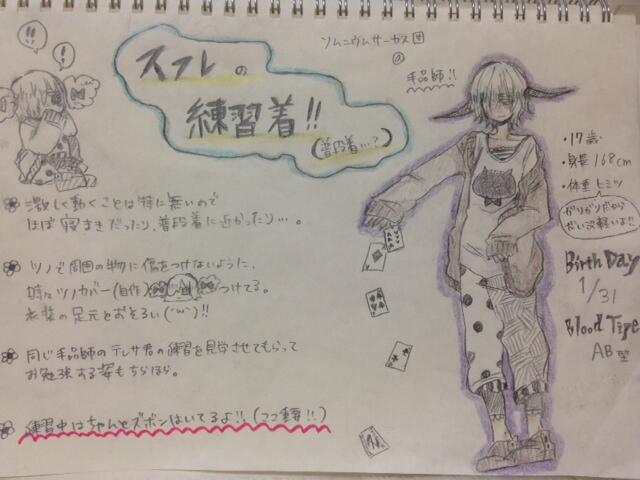 !!
!!
スフレの
練習着!!
(普段着…?)
ソムニウムサーカス団
の
手品師!!
・17歳
・身長168cm
・体重ヒミツ
がりがりだから
だいぶ軽いよ!!
Birth Day
1/31
Blood Type
AB型
激しく動くことは特に無いので
ほぼ寝まきだったり、普段着に近かったり…。
ツノで周囲の物に傷をつけないように、
時々ツノカバー(自作) つけてる。
衣装の足元とおそろい(´ω`)!!
同じ手品師のテレサ君の練習を見学させてもらって
お勉強する姿もちらほら。
練習中はちゃんとズボンはいてるよ!!(ここ重要!!)